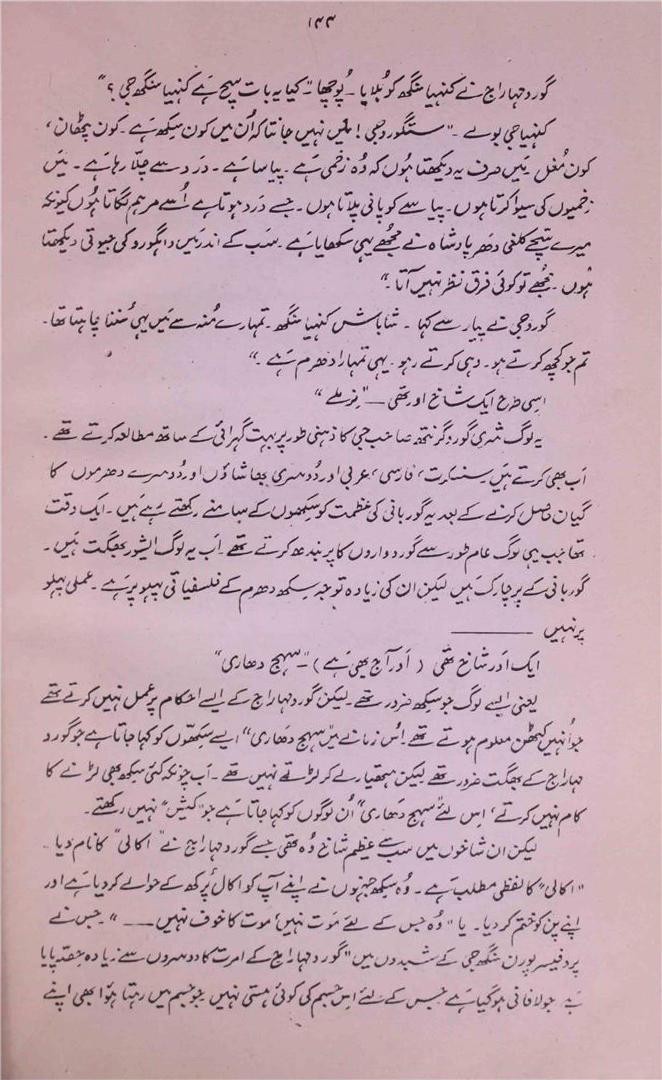 ۱۴۴
گورو مہاراج نے کنہیا سنگھ کو بُلایا۔ پُوچھا "کیا یہ بات سچ ہے کنہیا سنگھ جی؟"
کنہیا جی بولے۔ "ستگورو جی! مَیں نہیں جانتا کہ اُن میں کون سِکھ ہے۔ کون پٹھان،
کون مُغل مَیں صرف یہ دیکھتا ہوں کہ وُہ زخمی ہے۔ پیاسا ہے۔ درد سے چلّا رہا ہے۔ مَیں
زخمیوں کی سیوا کرتا ہوں۔ پیاسے کو پانی پلاتا ہوں۔ جسے درد ہوتا ہے اُسے مرہم لگاتا ہُوں کیونکہ
میرے سچّے کلغی دھر پادشاہ نے مجھے یہی سکھایا ہے۔ سب کے اندر مَیں واہگورو کی جیوتی دیکھتا
ہُوں۔ مجُھے تو کوئی فرق نظر نہیں آتا۔"
گورو جی نے پیار سے کہا۔ شاباش کنہیا سنگھ۔ تمہارے مُنہ سے مَیں یہی سُننا چاہتا تھا۔
تم جو کچھ کرتے ہو۔ وہی کرتے رہو۔ یہی تمہارا دھرم ہے۔"
اِسی طرح ایک شاخ اور تھی — "نِرملے"
یہ لوگ شری گورو گرنتھ صاحب جی کا ذہنی طور پر بہت گہرائی کے ساتھ مطالعہ کرتے تھے۔
اَب بھی کرتے ہیں سنسکرت، فارسی، عربی اور دُوسری بھاشاؤں اور دُوسرے دھرموں کا
گیان حاصل کرنے کے بعد یہ گوربانی کی عظمت کو سِکھوں کے سامنے رکھتے رہے ہیں۔ ایک وقت
تھا جب یہی لوگ عام طور سے گورودواروں کا پربندھ کرتے تھے۔ اَب یہ لوگ ایشور بھگت ہیں۔
گوربانی کے پرچارک ہیں لیکن ان کی زیادہ توجہ سِکھ دھرم کے فلسفیاتی پہلو پر ہے۔ عملی پہلو
پر نہیں ———
ایک اور شاخ تھی (اور آج بھی ہے) — "سہج دھاری"
یعنی ایسے لوگ جو سِکھ ضرور تھے۔ لیکن گورو مہاراج کے ایسے احکام پر عمل نہیں کرتے تھے
جو اُنہیں کٹھن معلوم ہوتے تھے۔ اُس زمانے میں "سہج دھاری" ایسے سکِھّوں کو کہا جاتا ہے جو گورو
مہاراج کے بھگت ضرور تھے لیکن ہتھیار لے کر لڑتے نہیں تھے۔ اَب چونکہ کئی سِکھ بھی لڑنے کا
کام نہیں کرتے، اس لئے "سہج دھاری" اُن لوگوں کو کہا جاتا ہے جو "کیش" نہیں رکھتے۔
لیکن ان شاخوں میں سب سے عظیم شاخ وُہ تھی جسے گورو مہاراج نے "اکالی" کا نام دیا۔
"اکالی" کا لفظی مطلب ہے۔ وُہ سِکھ جنہوں نے اپنے آپ کو اکال پُرکھ کے حوالے کر دیا ہے اور
اپنے پن کو ختم کر دیا۔ یا "وُہ جس کے لئے مَوت نہیں، موت کا خوف نہیں —"۔ جس نے
پروفیسر پورن سنگھ جی کے شبدوں میں "گورو مہاراج کے امرت کا دوسروں سے زیادہ حِصّہ پایا
ہے جو لافانی ہو گیا ہے جس کے لئے اس جسم کی کوئی ہستی نہیں جو جسم میں رہتا ہُوا بھی اپنے